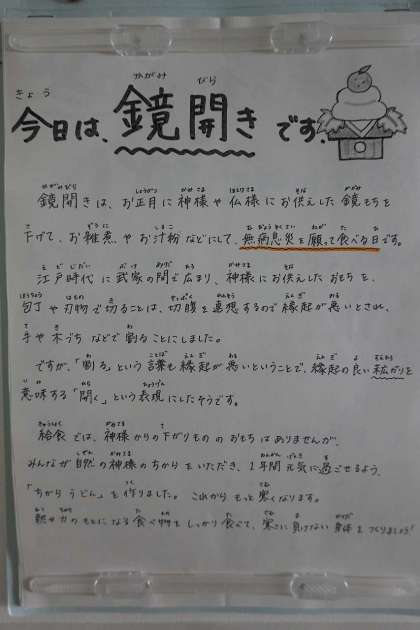 今日は、鏡開きです。
鏡開きは、お正月に神様や仏様にお供えした鏡もちを
下げて、お雑煮やお汁粉などにして、無病息災を願って食べる日です。
江戸時代に武家の間で広まり、神様にお供えしたおもちを、
包丁や刃物で切ることは、切腹を連想するので縁起が悪いとされ、
手や木づちなどで割ることにしました。
ですが、「割る」という言葉も縁起が悪いということで、縁起の良い末広がりを
意味する「開く」という表現にしたそうです。
給食では、神様からの下がりもののおもちはありませんが、
みんなが自然の神様のちからをいただき、1年間元気に過ごせるよう、
「ちからうどん」を作りました。これからもっと寒くなります。
熱や力のもとになる食べ物をしっかり食べて、寒さに負けない身体をつくりましょう!